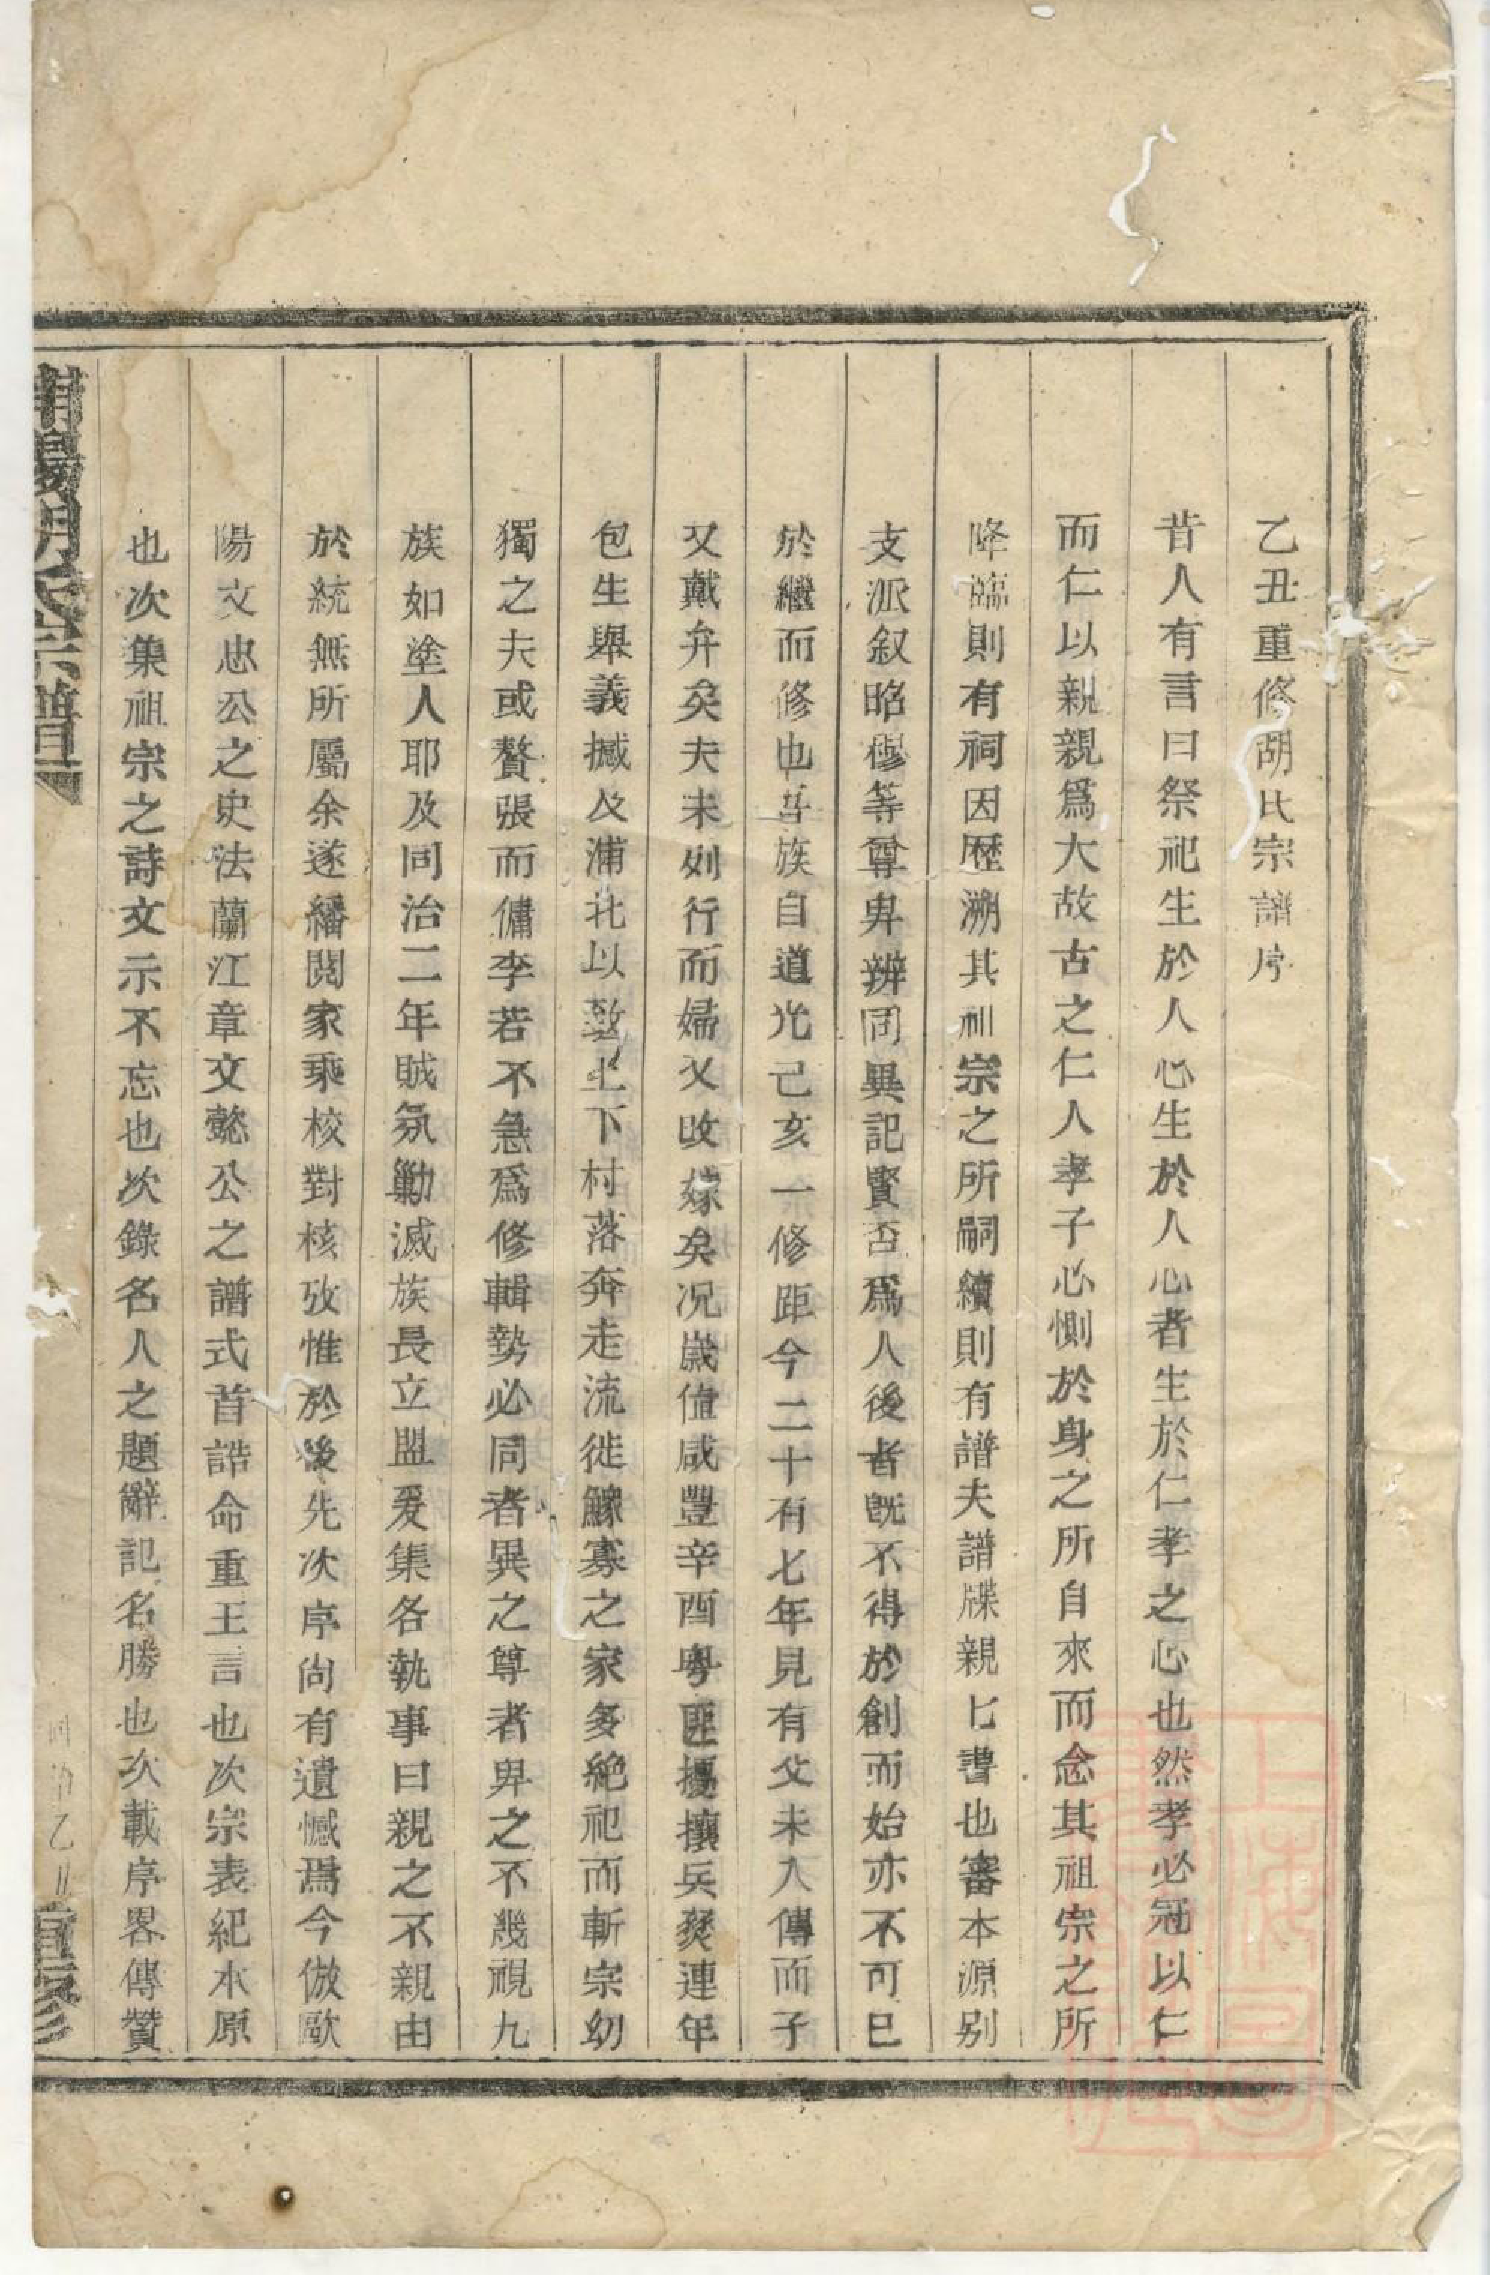 乙丑重修胡氏宗譜序
昔人有言曰祭祀生於人心生於人心者生於仁孝之心也然孝必冠以仁
而仁以親親爲大故古之仁人孝子必惻於身之所自來而念其祖宗之所
降臨則有祠因歷溯其祖宗之所嗣續則有譜夫譜牒親匕書也審本源别
支派叙昭穆等尊卑辨同異記賢否爲人後者旣不得於創而始亦不可已
於繼而修也吾族自道光己亥一修距今二十有七年見有父未入傳而子
又戴弁矣夫未列行而婦又改嫁矣况歲值咸豐辛酉粤匪擾攘兵燹連年
包生舉義撼及浦北以致上下村落奔走流徙鰥寡之家多絶祀而斬宗幼
獨之夫或贅張而傭李若不急爲修輯勢必同者異之尊者卑之不幾視九
族如塗人耶及同治二年賊氛勦滅族長立盟爰集各執事曰親之不親由
於統無所屬余遂繙閱家乘校對核攷惟於後先次序尚有遺憾焉今倣歐
陽文忠公之史法蘭江章文懿公之譜式首誥命重王言也次宗表紀本原
也次集祖宗之詩文示不忘也次錄名人之題辭記名勝也次載序畧傳贊
浦陽胡氏宗譜
同治乙丑重修
上海圖書館藏